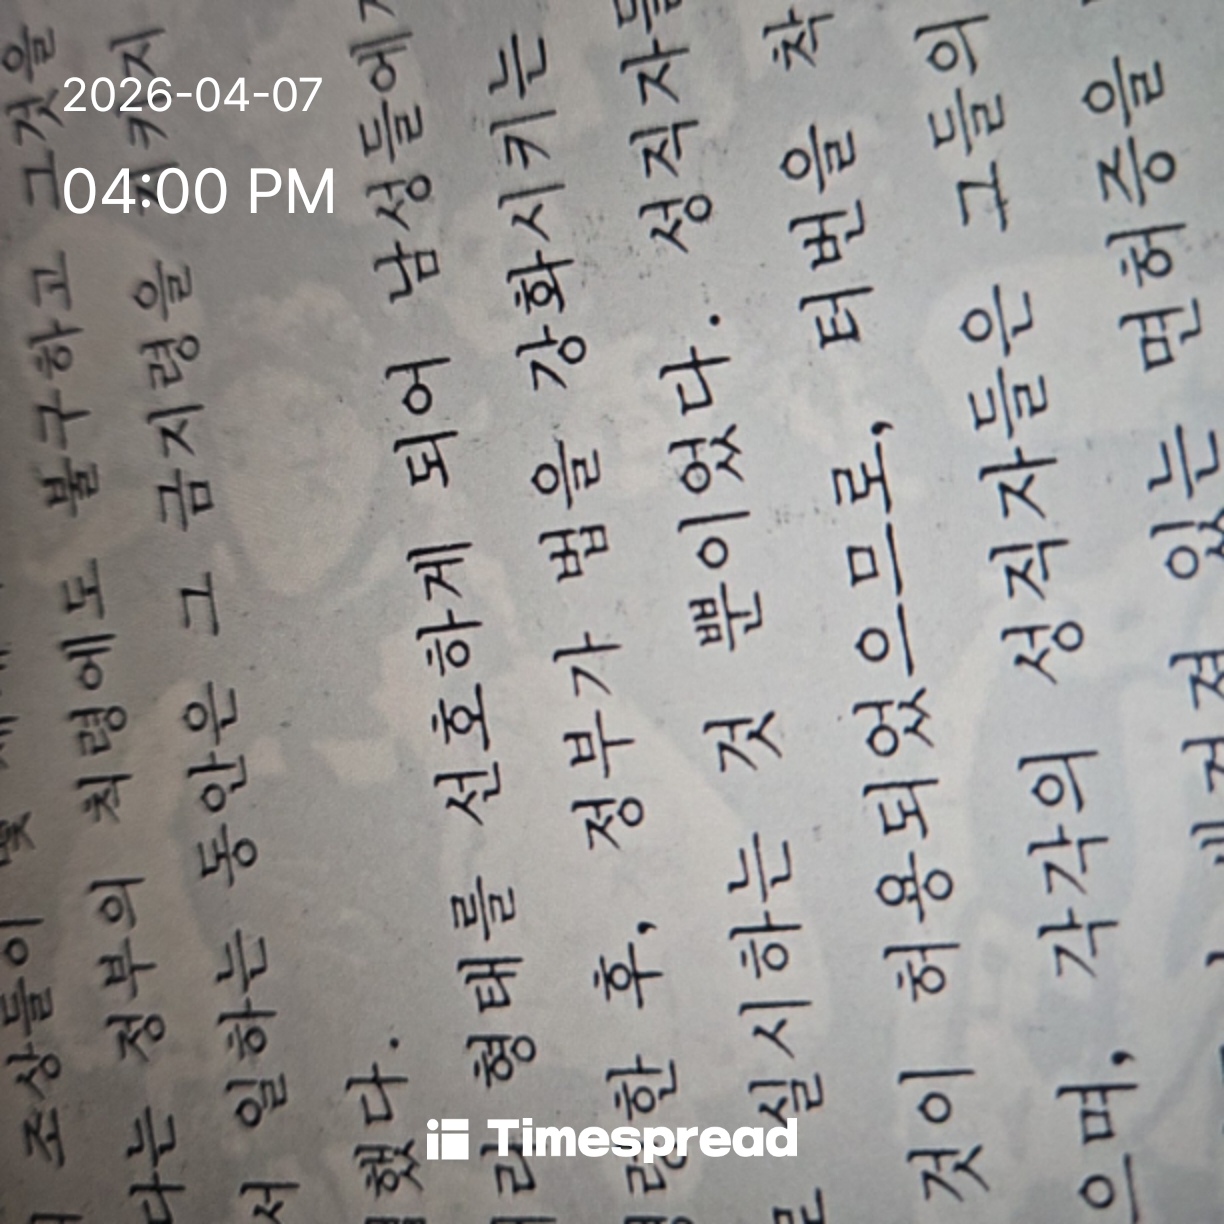 조상들이
다는 정부의 칙령에도 불구하고 그것을
서 일하는 동안은 그 금지령을 지키지
했다.
형태를 선호하게 되어 남성들에
한 후, 정부가 법을 강화시키는
로 실시하는 것 뿐이었다. 성직자들
것이 허용되었으므로, 터번을 착
으며, 각각의 성직자들은 그들의
있는 면허증을
2026-04-07
04:00 PM
Timespread